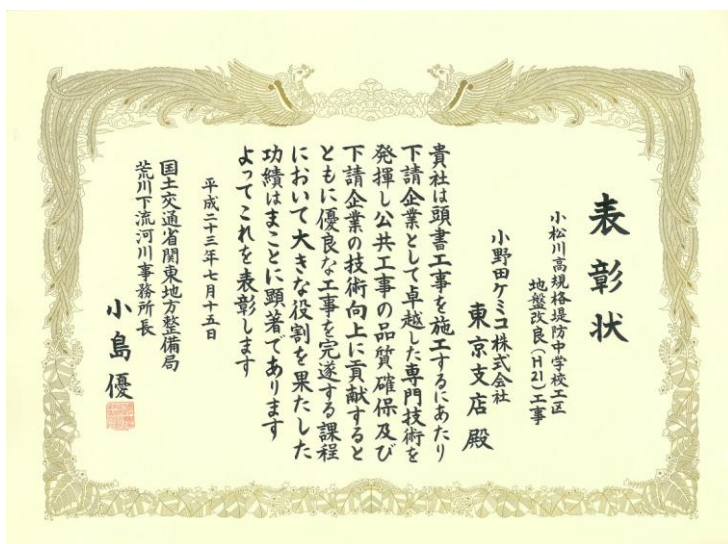 表彰状
小松川高規格堤防中学校工区
地盤改良(H21)工事
小野田ケミコ株式会社
東京支店殿
貴社は頭書工事を施工するにあたり
下請企業として卓越した専門技術を
発揮し公共工事の品質確保及び
下請企業の技術向上に貢献すると
ともに優良な工事を完遂する課程
において大きな役割を果たした
功績はまことに顕著であります
よってこれを表彰します
平成二十三年七月十五日
国土交通省関東地方整備局
荒川下流河川事務所長
小島優